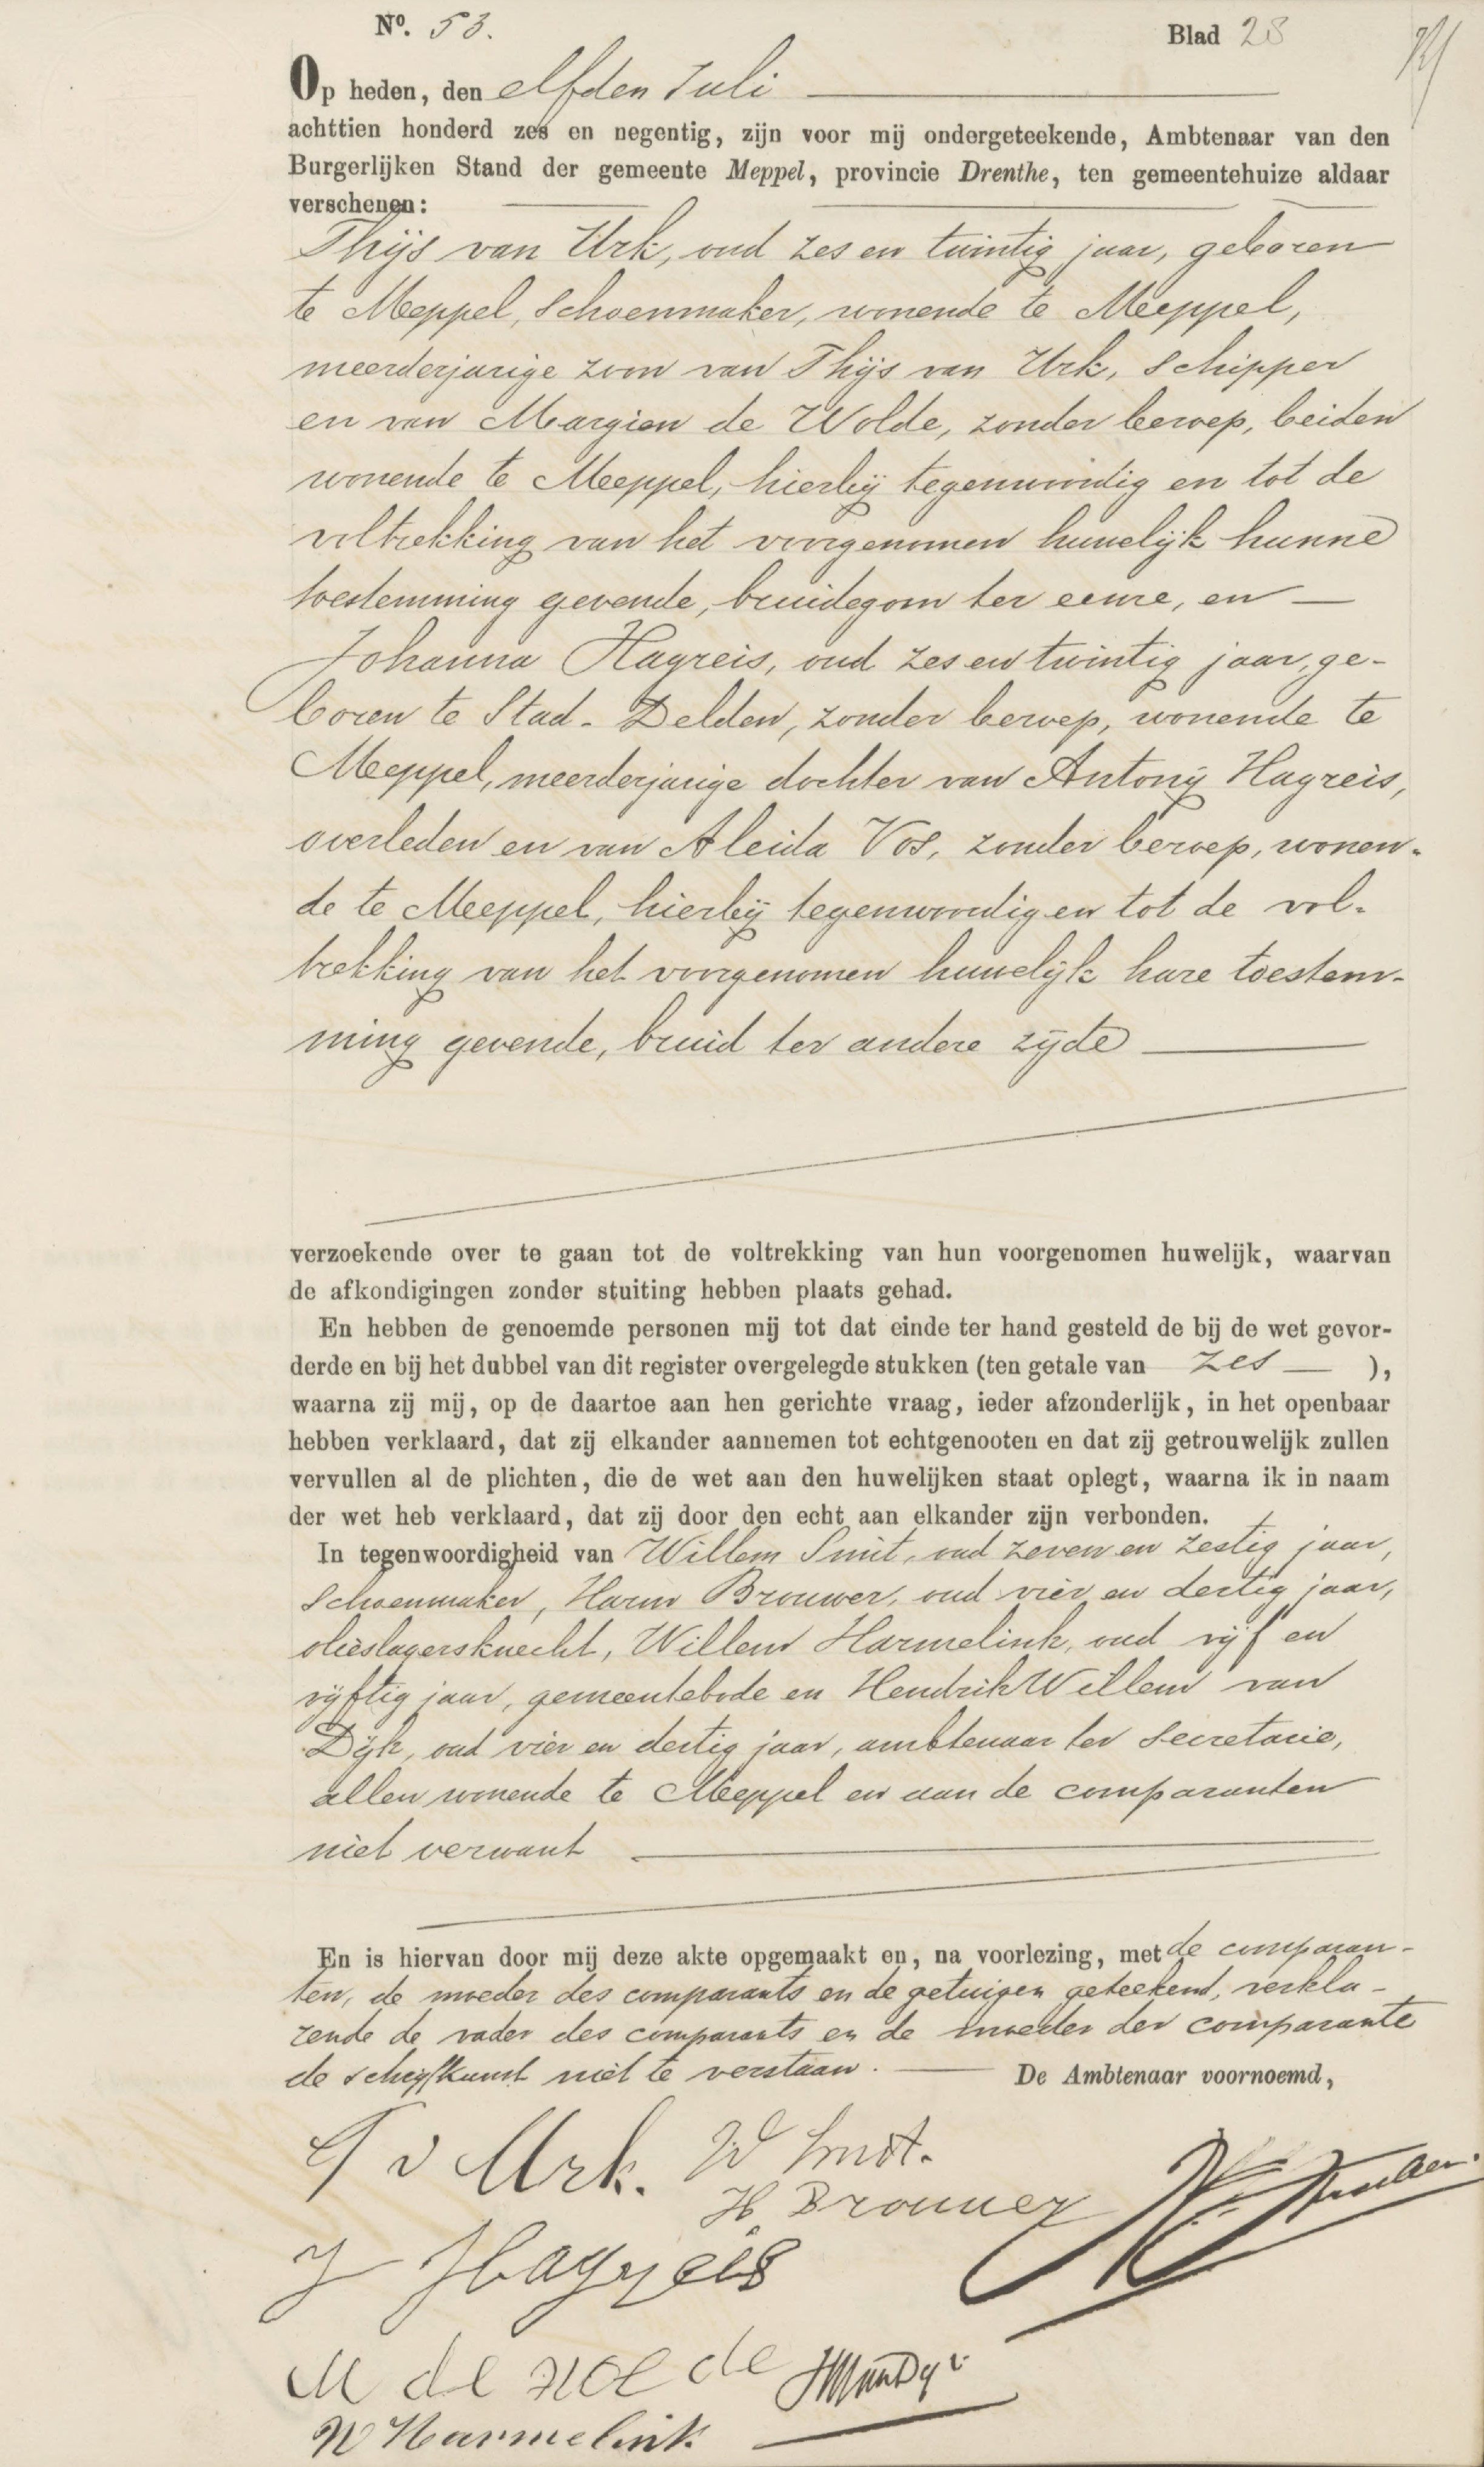 Nº. 53.
Blad 28
Op heden, den elfden Juli
achttien honderd zes en negentig, zijn voor mij ondergeteekende, Ambtenaar van den
Burgerlijken Stand der gemeente Meppel, provincie Drenthe, ten gemeentehuize aldaar
verschenen:
Thijs van Urk, oud zes en twintig jaar, geboren
te Meppel, schoenmaker, wonende te Meppel,
meerderjarige zoon van Thijs van Urk, schipper
en van Margien de Wolde, zonder beroep, beiden
wonende te Meppel, hierbij tegenwoordig en tot de
voltrekking van het voorgenomen huwelijk hunne
toestemming gevende, bruidegom ter eenre, en —
Johanna Hagreis, oud zes en twintig jaar, ge-
boren te Stad-Delden, zonder beroep, wonende te
Meppel, meerderjarige dochter van Antonij Hagreis,
overleden en van Aleida Vos, zonder beroep, wonen-
de te Meppel, hierbij tegenwoordig en tot de vol-
trekking van het voorgenomen huwelijk hare toestem-
ming gevende, bruid ter andere zijde
verzoekende over te gaan tot de voltrekking van hun voorgenomen huwelijk, waarvan
de afkondigingen zonder stuiting hebben plaats gehad.
En hebben de genoemde personen mij tot dat einde ter hand gesteld de bij de wet gevor-
derde en bij het dubbel van dit register overgelegde stukken (ten getale van zes — ),
waarna zij mij, op de daartoe aan hen gerichte vraag, ieder afzonderlijk, in het openbaar
hebben verklaard, dat zij elkander aannemen tot echtgenooten en dat zij getrouwelijk zullen
vervullen al de plichten, die de wet aan den huwelijken staat oplegt, waarna ik in naam
der wet heb verklaard, dat zij door den echt aan elkander zijn verbonden.
In tegenwoordigheid van Willem Smit, oud zeven en zestig jaar,
schoenmaker, Harm Brouwer, oud vier en dertig jaar,
olieslagersknecht, Willem Harmelink, oud vijf en
vijftig jaar, gemeentebode en Hendrik Willem van
Dijk, oud vier en dertig jaar, ambtenaar ter secretarie,
allen wonende te Meppel en aan de comparanten
niet verwant
En is hiervan door mij deze akte opgemaakt en, na voorlezing, met de comparan-
ten, de moeder des comparants en de getuigen geteekend, verkla-
rende de vader des comparants en de moeder der comparante
de schrijfkunst niet te verstaan.
De Ambtenaar voornoemd,
T v Urk. W Smit.
H Brouwer
J Hagreis
M de Wolde HWvanDijk
W Harmelink